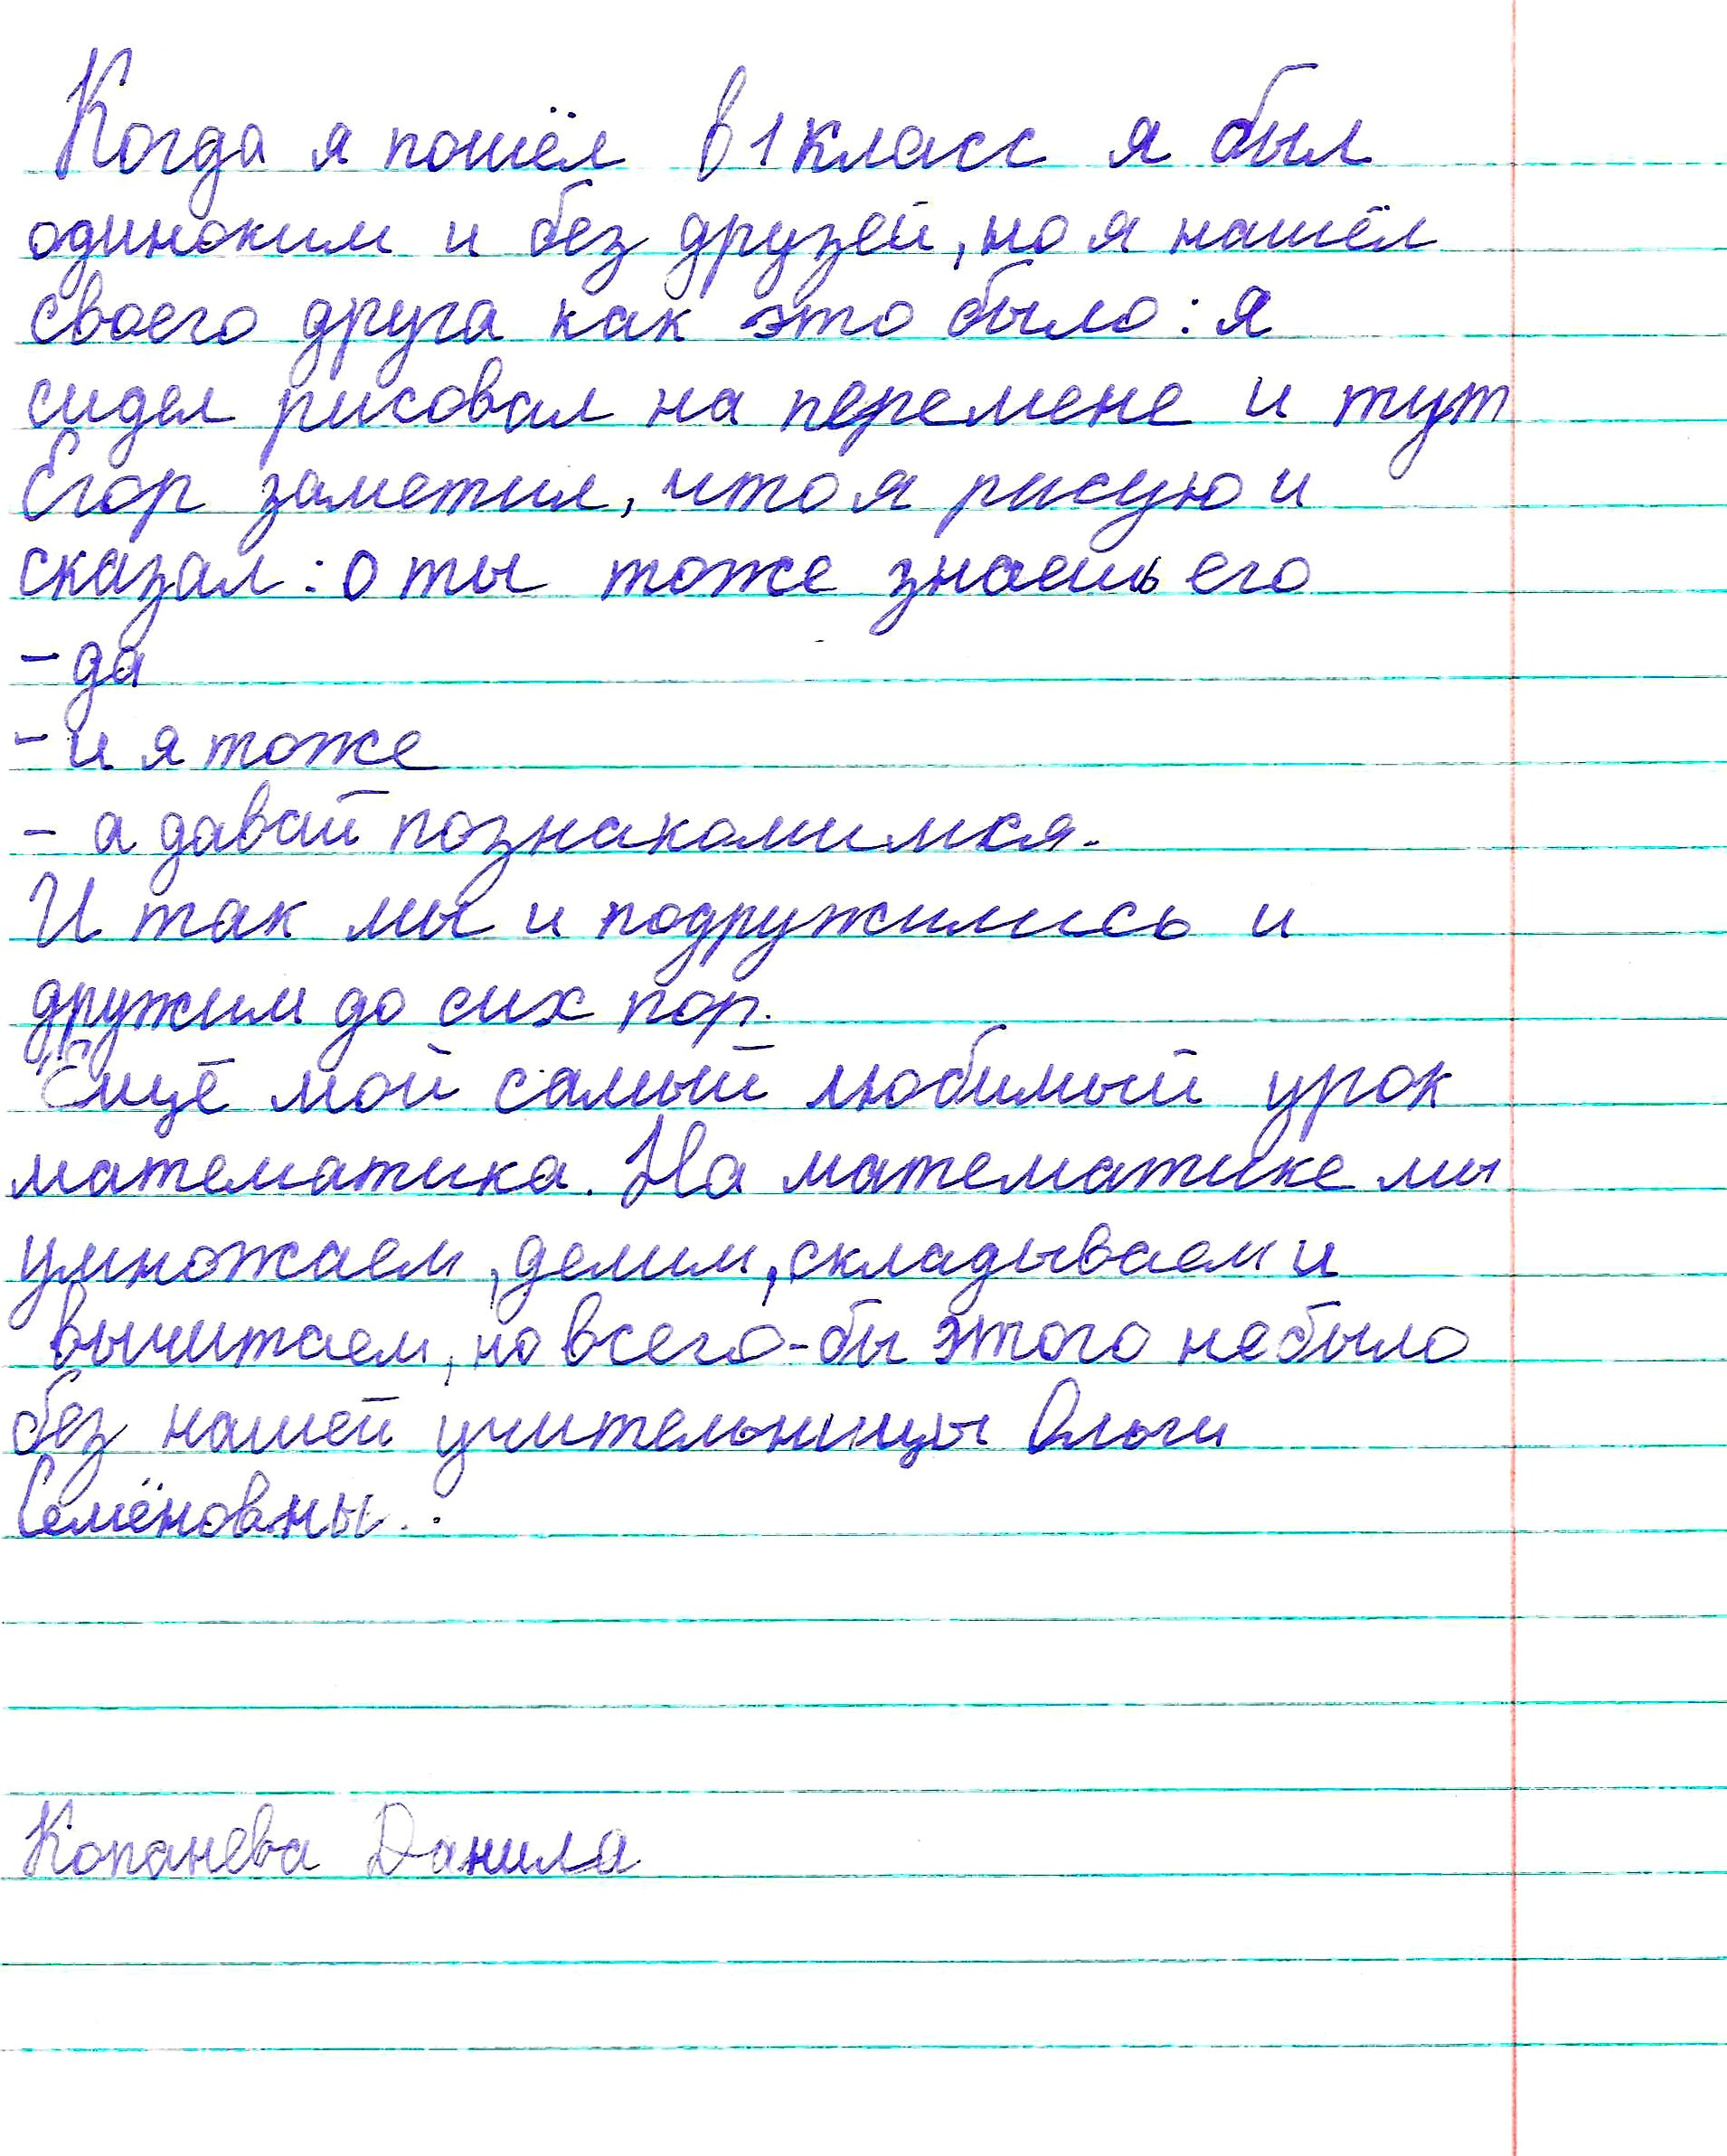 Когда я пошёл в 1 класс я был
одиноким и без друзей, но я нашёл
своего друга как это было: я
сидел рисовал на перемене и тут
Егор заметил, что я рисую и
сказал: о ты тоже знаешь его
- да
- и я тоже
- а давай познакомимся.
И так мы и подружились и
дружим до сих пор.
Ещё мой самый любимый урок
математика. На математике мы
умножаем, делим, складываем и
вычитаем, но всего-бы этого не было
без нашей учительницы Ольги
Семёновны.
Копанева Данила